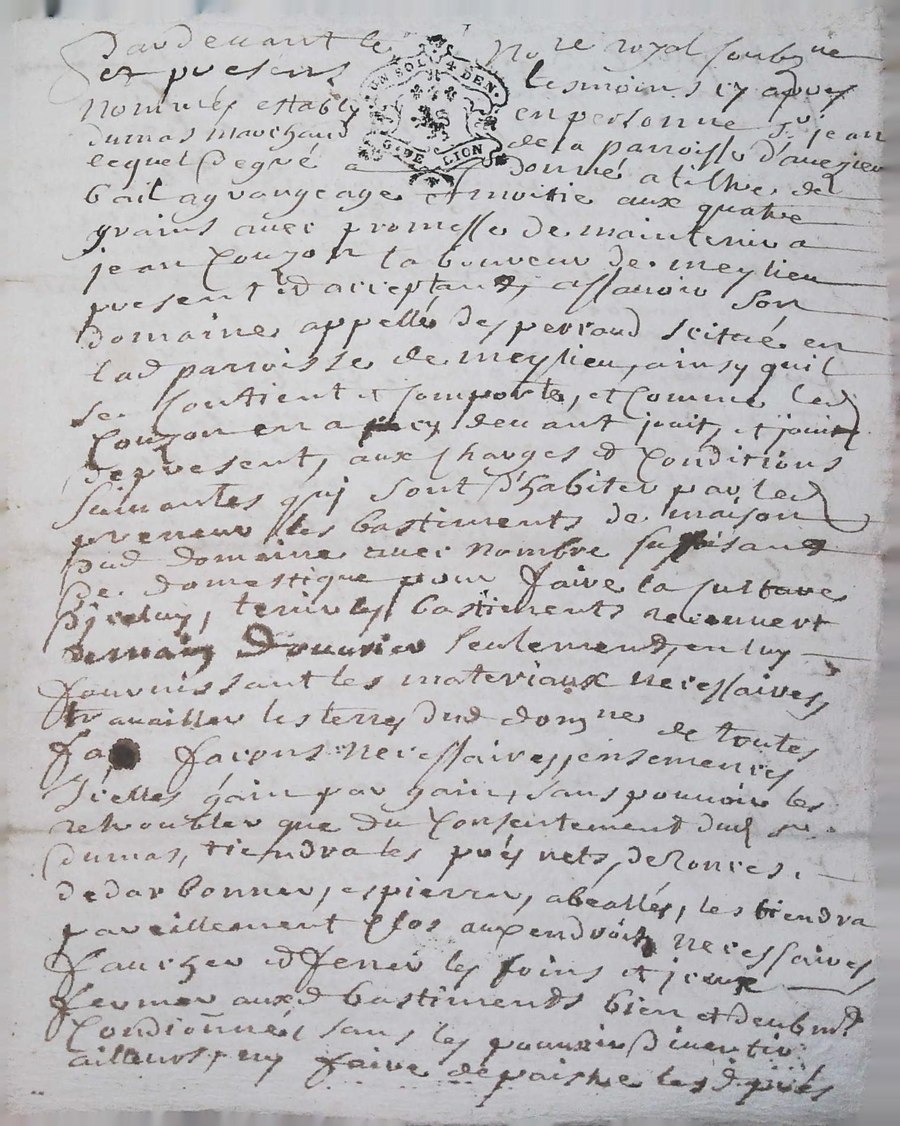 Pardevant le No.re royal soubz.ne
et presens tesmoins cy apres
UN SOL 4 DEN.
G. DE LION
nommés estably en personne Sr jean
dumas marchand de la parroisse d'aveyzieu
lequel degré a donné a tiltre de
bail a grangeage et moitie aux quatre
grains avec promesse de maintenir a
jean Couzon laboureur de meylieu
present et acceptant, assavoir son
domaine appellé des perraud scitué en
lad parroisse de meylieu, ainsy quil
se contient et comporte, et comme led
Couzon en a cy devant jouit, et jouit
de present, aux charges et Conditions
suivantes qui sont d'habiter par led
preneur les bastiments de maison
dud domaine avec nombre suffisant
de domestique pour faire la culture
d'jceluy, tenir les bastiments recouvert
de main d'ouvrier seulement, en luy
fournissant les materiaux necessaires
travailler les terres dud domne de toutes
façons necessaires, ensemences
jcelles gain par gain, sans pouvoir les
retroubler que du Consentement dud sr
dumas, tiendra les prés nets, de ronces,
de darbonner, espierrer, abeallés, les tiendra
pareillement clos aux endroits necessaires
faucher et fener les foins et jceux
fermer auxd bastiments bien et deubmt
Conditionnés sans les pouvoir divertir
ailleurs, ny faire depaistre lesd prés